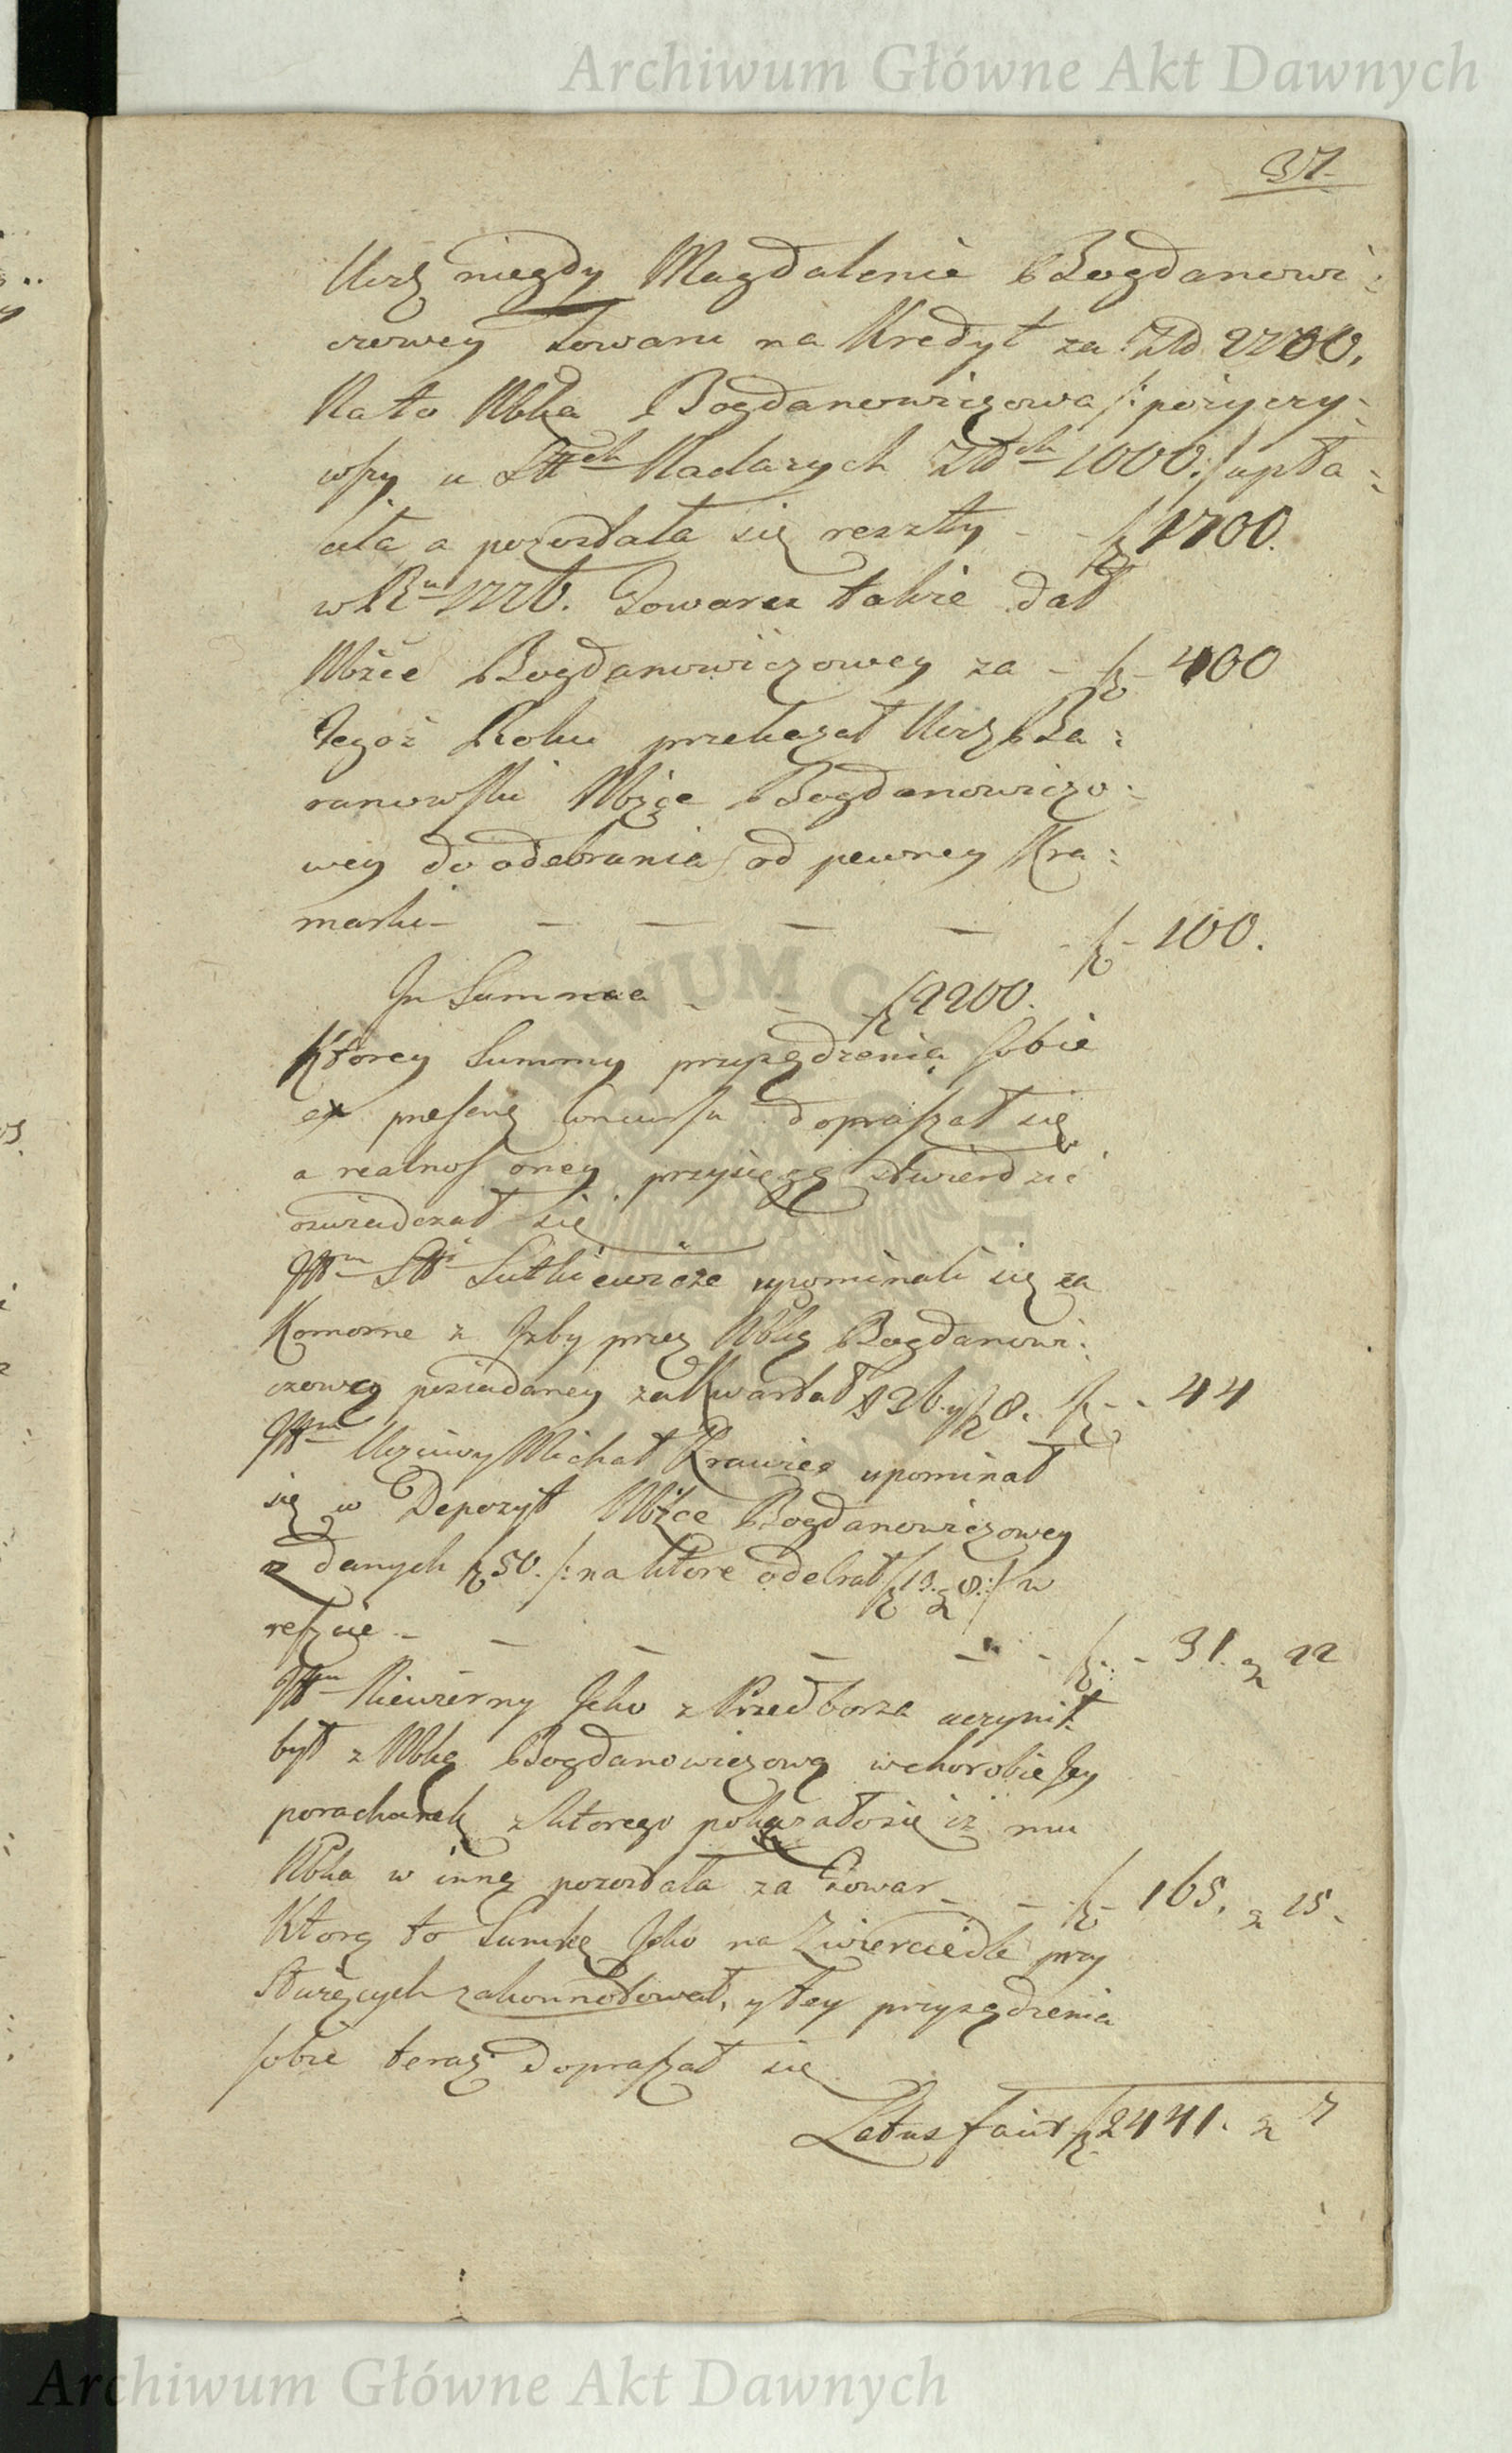 Archiwum Główne Akt Dawnych
37.
Urz niegdy Magdalenie Bogdanowi:
czowey Towaru na Kredyt za Złt 2700.
Na to Nbka Bogdanowiczowa /: pożyczy:
wszy u Stt ch Nadarzych Złt ch 1000 :/ upła:
ciła a pozostała się reszty - - f 1700.
w Ru 1776. Towaru także dał
Nbżce Bogdanowiczowey za - f - 400
Tegoż Roku przekazał Urz Ba:
ranowski Nbżce Bogdanowiczo:
wey do odebrania od pewney Kra:
marki - - - - - - f - 100.
In Summa - - f 2200.
Ktorey Summy przysądzenia sobie
ex præsenę Concursu dopraszał się
a realnos oney przysięgą stwierdzić
oświadczał się
Ittm Stti Lutkiewicze upominali się za
Komorne z Izby przez Nbkę Bogdanowi:
czową posiadaney za Kwartał f 26. y f 8. f - - 44
Ittm Uczciwy Michał Krawiec upominał
się w Depozyt Nbżce Bogdanowiczowey
z danych f 50. /: na ktore odebrał f 13. g 8. :/ w
reszcie - - - - - - f - - 31. g 22
Ittm Niewierny Icko z Przedborza uczynił
był z Nbką Bogdanowiczową w chorobie Jey
porachunek z ktorego pokazało się iż mu
Nbka w inną pozostała za Towar - - f - 165. g 15.
Ktorą to Sumkę Icko na Zwierciedle przy
Służących zakonnotował, y tey przysądzenia
sobie teraz dopraszał się
Latus facit f 2441. g 7
Archiwum Główne Akt Dawnych